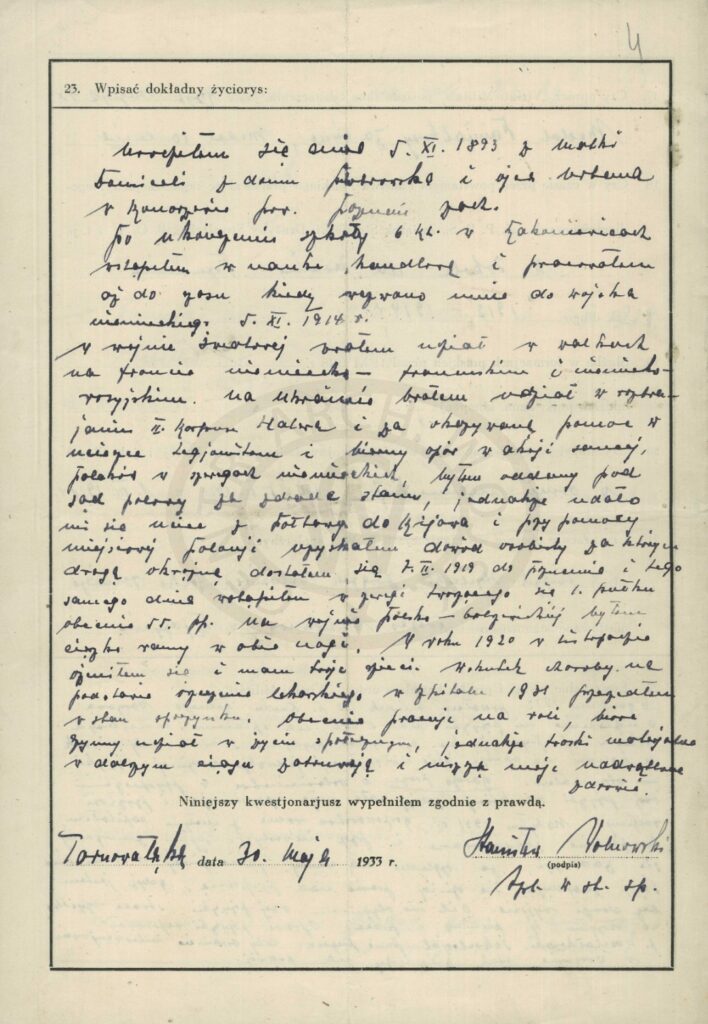 4
23. Wpisać dokładny życiorys:
Urodziłem się dnia 5. XI. 1893 z matki
z domu i ojca
w pow. Poznań zach.
Po ukończeniu szkoły 6 kl. w
wstąpiłem w naukę handlową i pracowałem
aż do czasu kiedy wezwano mnie do wojska
niemieckiego 5. XI. 1914 r.
W wojnie światowej brałem udział w walkach
na froncie niemiecko – francuskim i niemiecko-
rosyjskim. Na Ukrainie brałem udział w rozbra-
janiu II. Korpusu Hallera i za okazywaną pomoc w
ucieczce legjonistom i bierny opór w akcji samej,
Polaków w szeregach niemieckich, byłem oddany pod
sąd polowy za zdradę stanu, jednakże udało
mi się uciec z Połtawy do Kijowa i przy pomocy
miejscowej Polonji uzyskałem dowód osobisty za którym
drogą okrężną dostałem się 7. II. 1919 do Poznania i tego
samego dnia wstąpiłem w szeregi tworzącego się 1. pułku
obecnie 55. pp. Na wojnie polsko – bolszewickiej byłem
ciężko ranny w obie nogi. W roku 1920 w listopadzie
ożeniłem się i mam troje dzieci. Wskutek choroby na
podstawie orzeczenia lekarskiego w szpitalu 1931 przeszedłem
w stan spoczynku. Obecnie pracuję na roli, biorę
czynny udział w życiu społecznym, jednakże troski materjalne
w dalszym ciągu zatruwają i niszczą moje nadwątlone
zdrowie.
Niniejszy kwestjonarjusz wypełniłem zgodnie z prawdą.
data 30. maja 1933 r.
Stanisław
(podpis)
kpt. w st. sp.